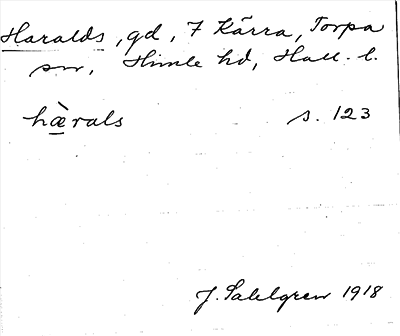 Haralds, gd, 7 Kärra, Torpa
sn, Himle hd, Hall. l.
hæ̀rals s. 123
J. Sahlgren 1918